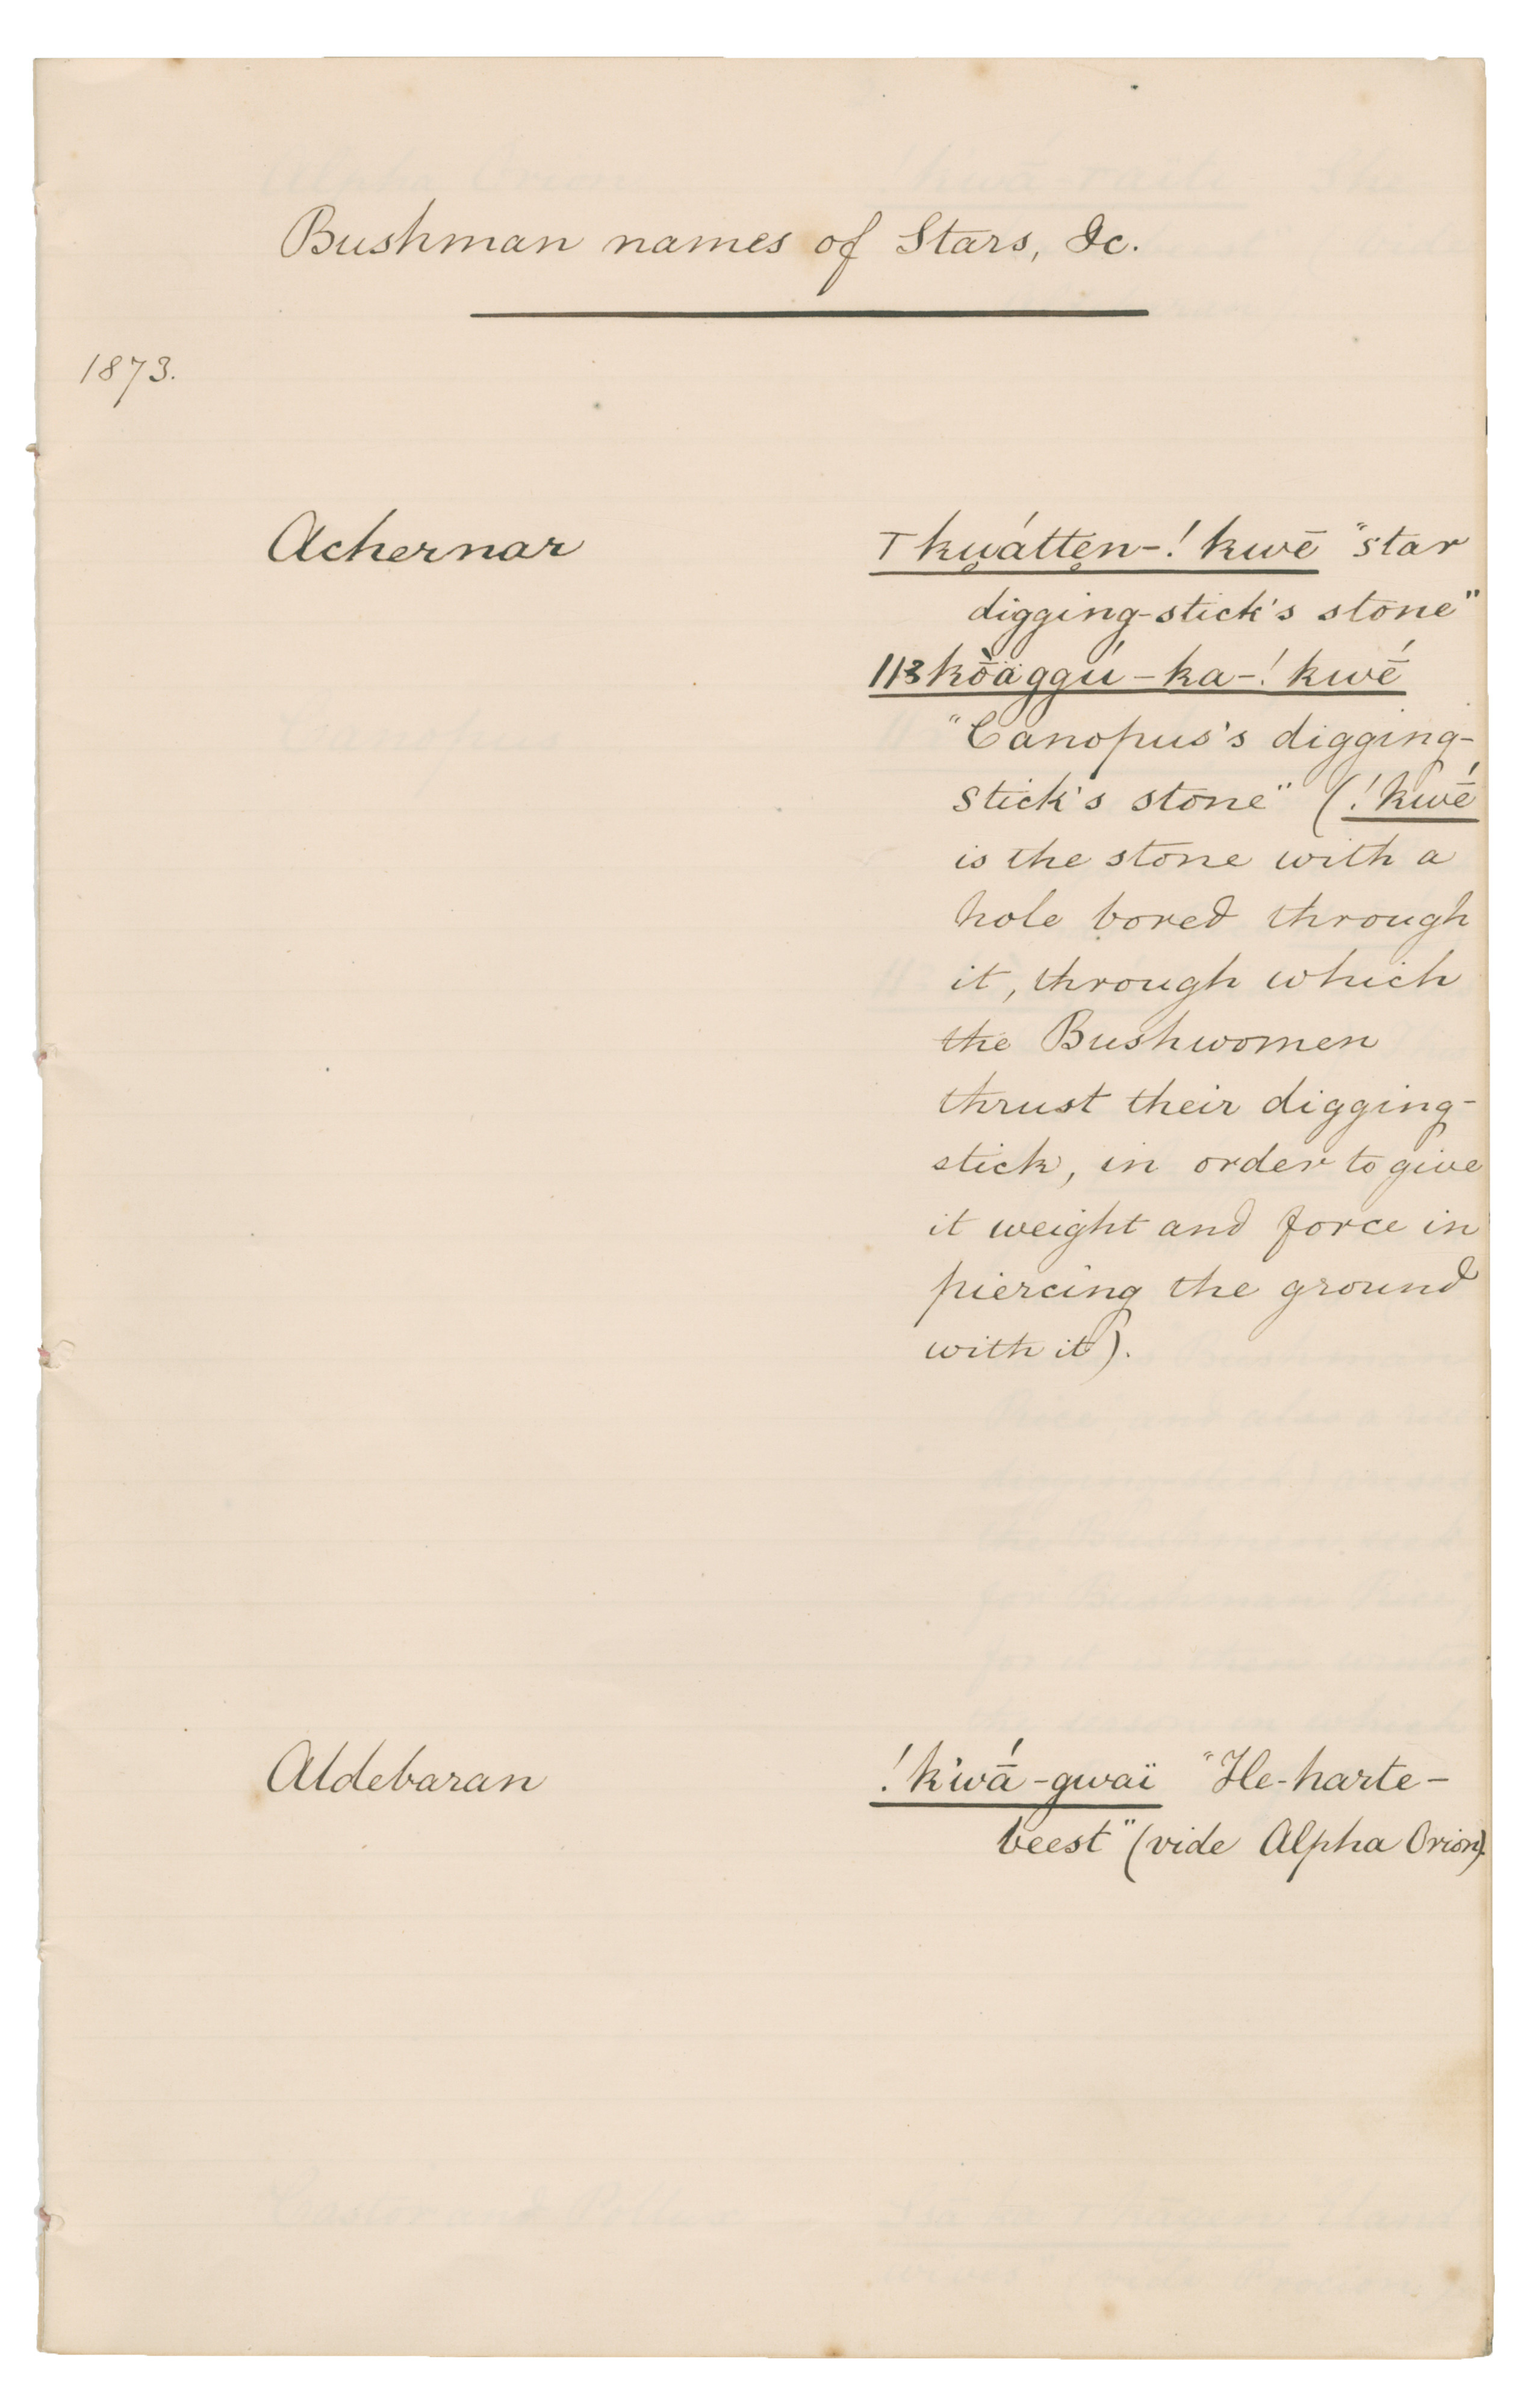 Bushman names of Stars, &c.
1873.
Achernar
⊤kwátten-!kwē "star
digging-stick's stone"
ǁ3kṑäggú-ka-!kwḗ
"Canopus's digging-
stick's stone" (!kwḗ
is the stone with a
hole bored through
it, through which
the Bushwomen
thrust their digging-
stick, in order to give
it weight and force in
piercing the ground
with it).
Aldebaran
!k'wā́-gwaï "He-harte-
beest" (vide Alpha Orion).